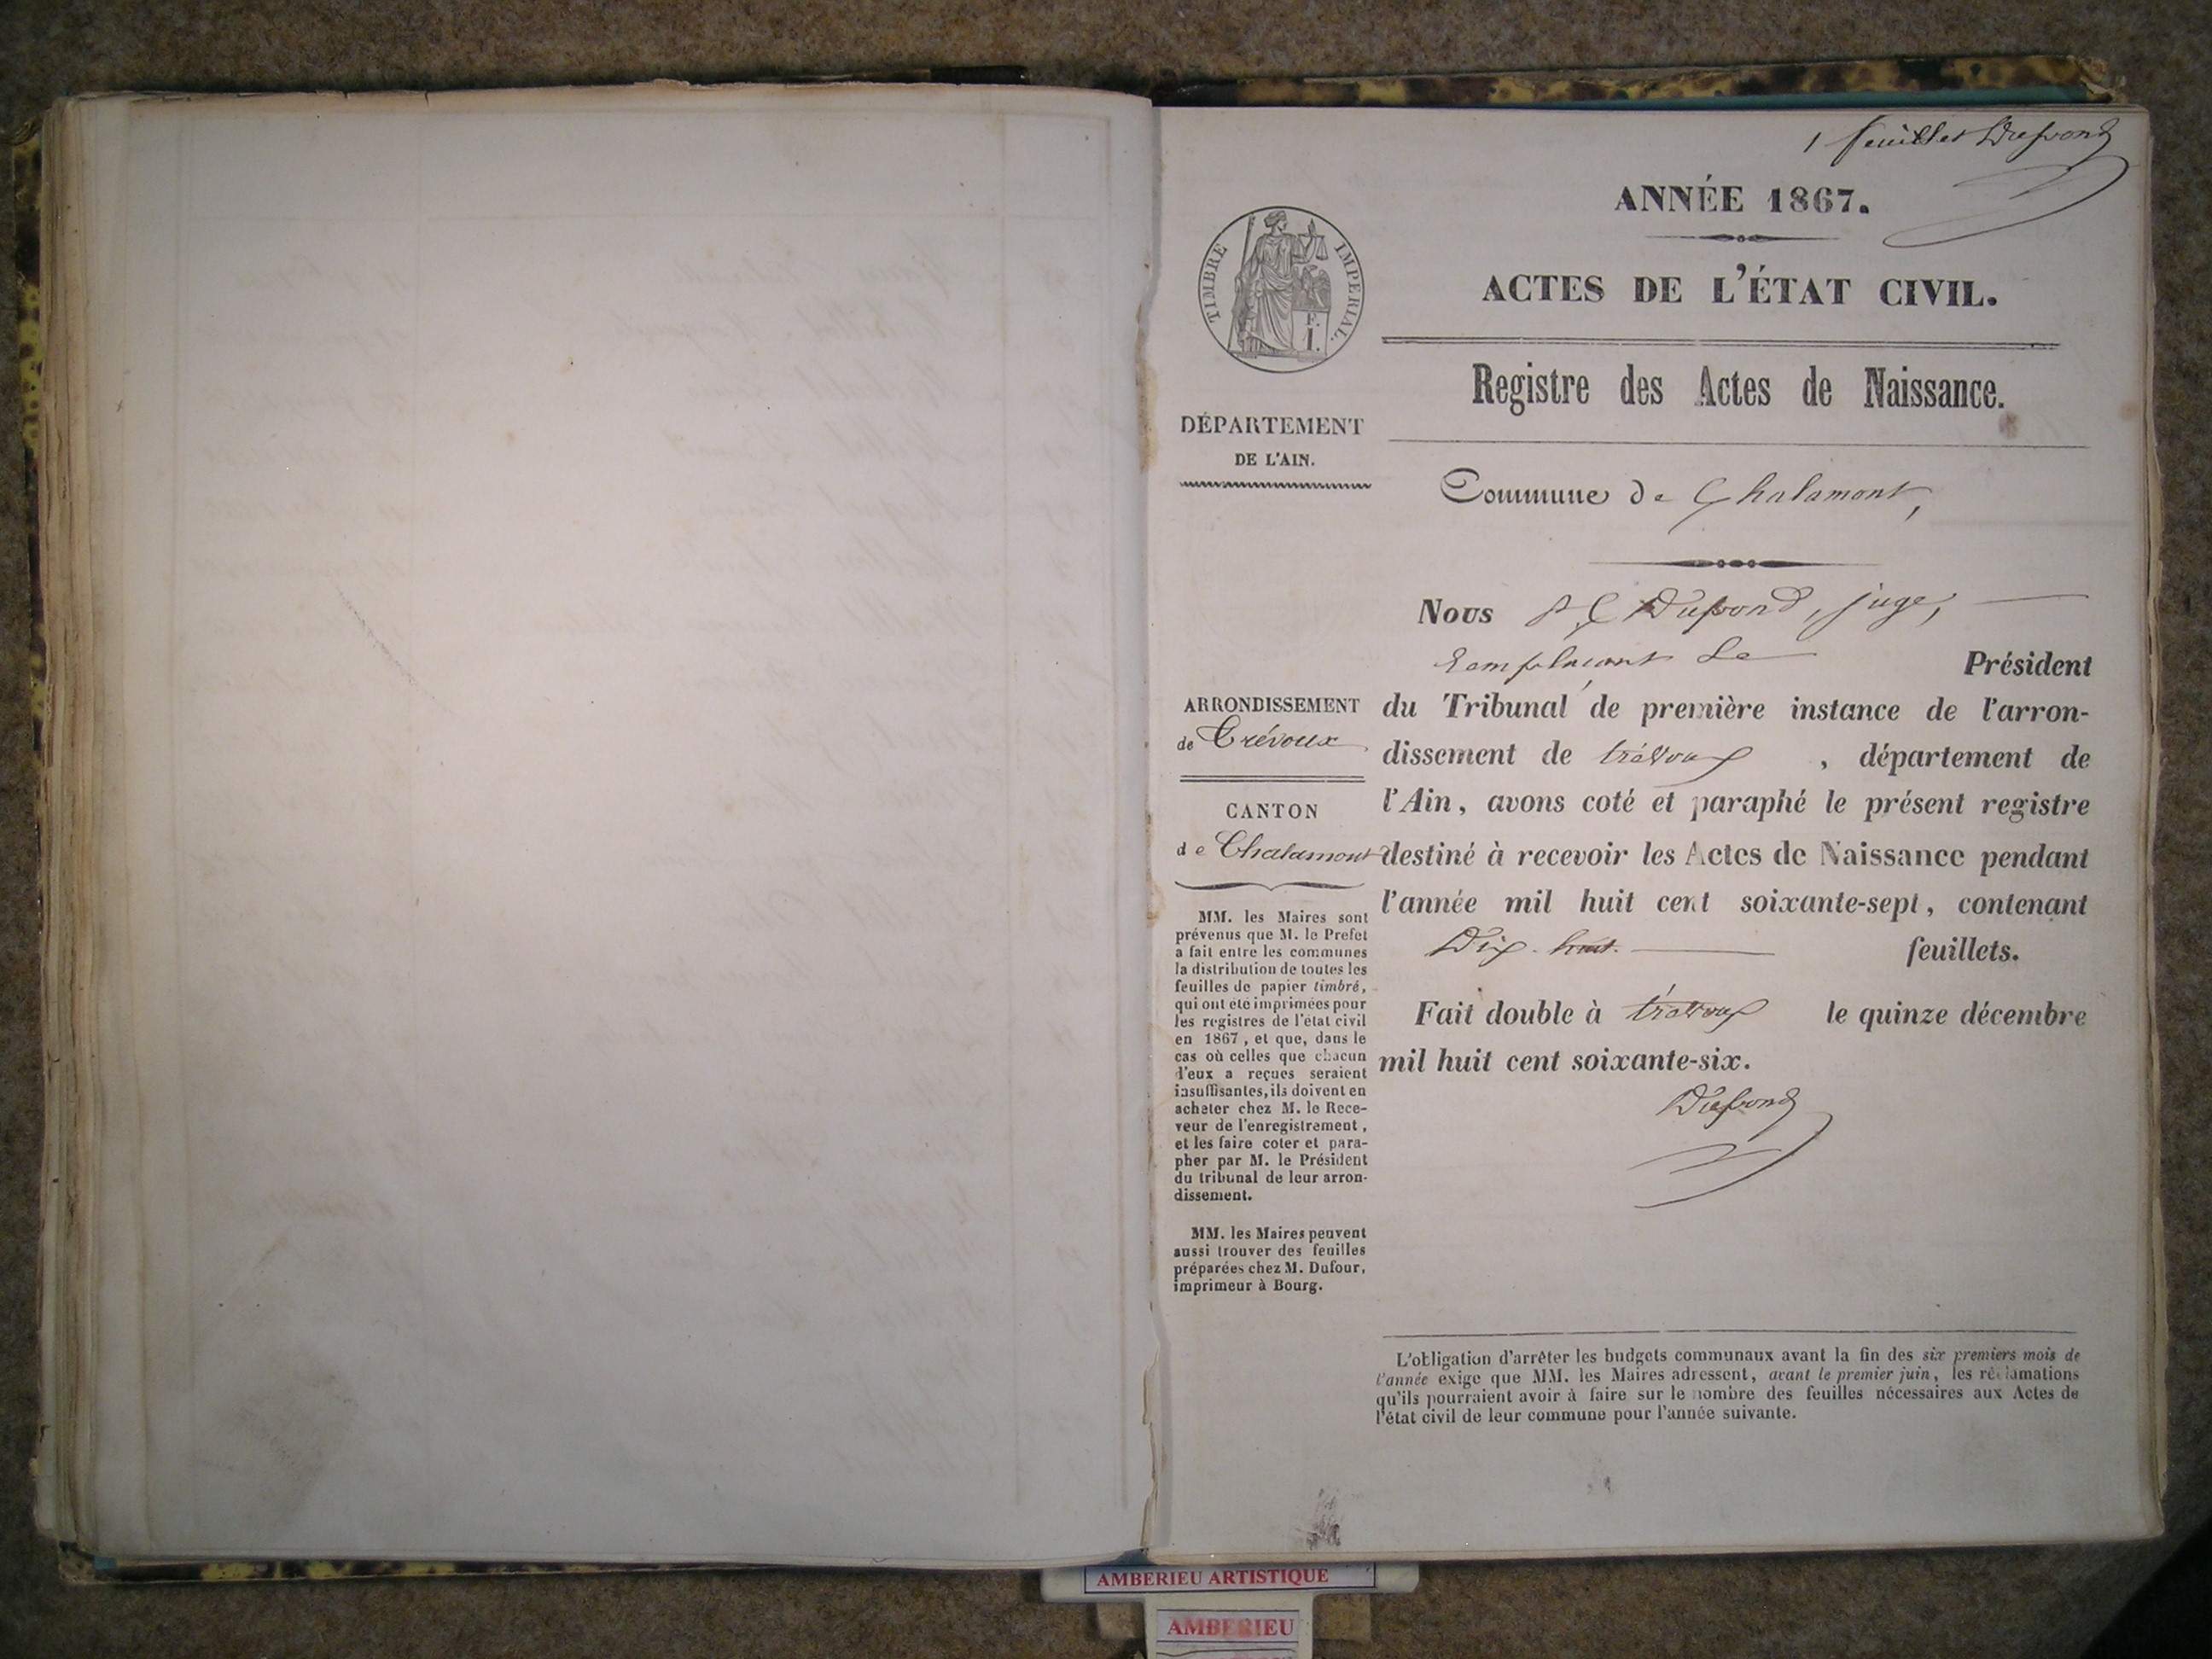 1 feuillet Dupond
ANNÉE 1867.
TIMBRE IMPERIAL.
F.
1.
ACTES DE L'ÉTAT CIVIL.
Registre des Actes de Naissance.
DÉPARTEMENT
DE L'AIN.
Commune de Chalamont,
Nous Dupond, juge,
Remplaçant le Président
ARRONDISSEMENT
de Trévoux
du Tribunal de première instance de l'arron-
dissement de trévoux, département de
CANTON
de Chalamont
l'Ain, avons coté et paraphé le présent registre
destiné à recevoir les Actes de Naissance pendant
l'année mil huit cent soixante-sept, contenant
Dix-huit feuillets.
Fait double à trévoux le quinze décembre
mil huit cent soixante-six.
Dupond
MM. les Maires sont
prévenus que M. le Prefet
a fait entre les communes
la distribution de toutes les
feuilles de papier timbré,
qui ont été imprimées pour
les registres de l'état civil
en 1867, et que, dans le
cas où celles que chacun
d'eux a reçues seraient
insuffisantes, ils doivent en
acheter chez M. le Rece-
veur de l'enregistrement,
et les faire coter et para-
pher par M. le Président
du tribunal de leur arron-
dissement.
MM. les Maires peuvent
aussi trouver des feuilles
préparées chez M. Dufour,
imprimeur à Bourg.
L'obligation d'arrêter les budgets communaux avant la fin des six premiers mois de
l'année exige que MM. les Maires adressent, avant le premier juin, les réclamations
qu'ils pourraient avoir à faire sur le nombre des feuilles nécessaires aux Actes de
l'état civil de leur commune pour l'année suivante.
AMBERIEU ARTISTIQUE
AMBERIEU